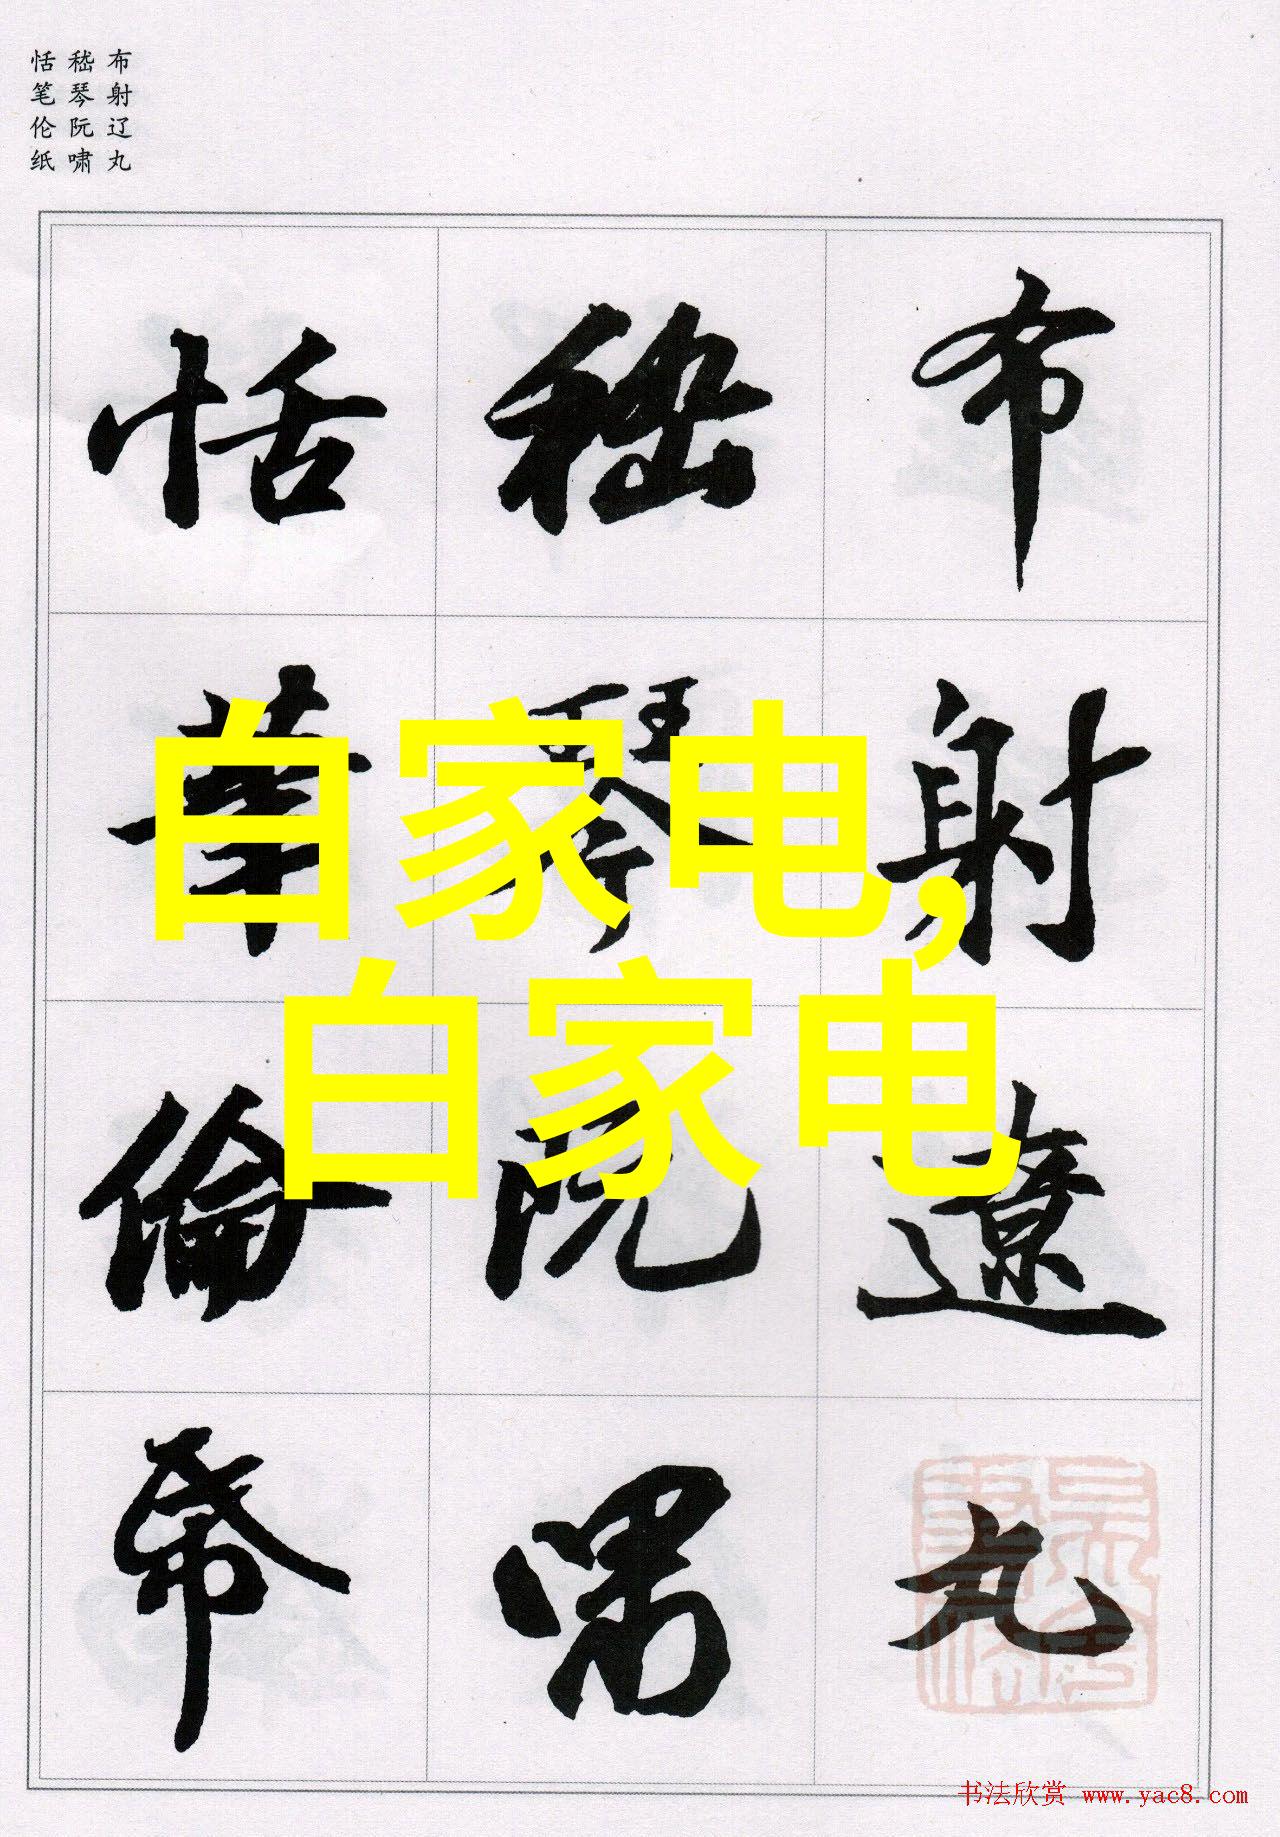 布射辽丸
嵇琴阮啸
恬笔伦纸
布射遼丸
嵇琴阮嘯
恬筆倫帋
白家电,
白家电
书法欣赏 www.yac8.com